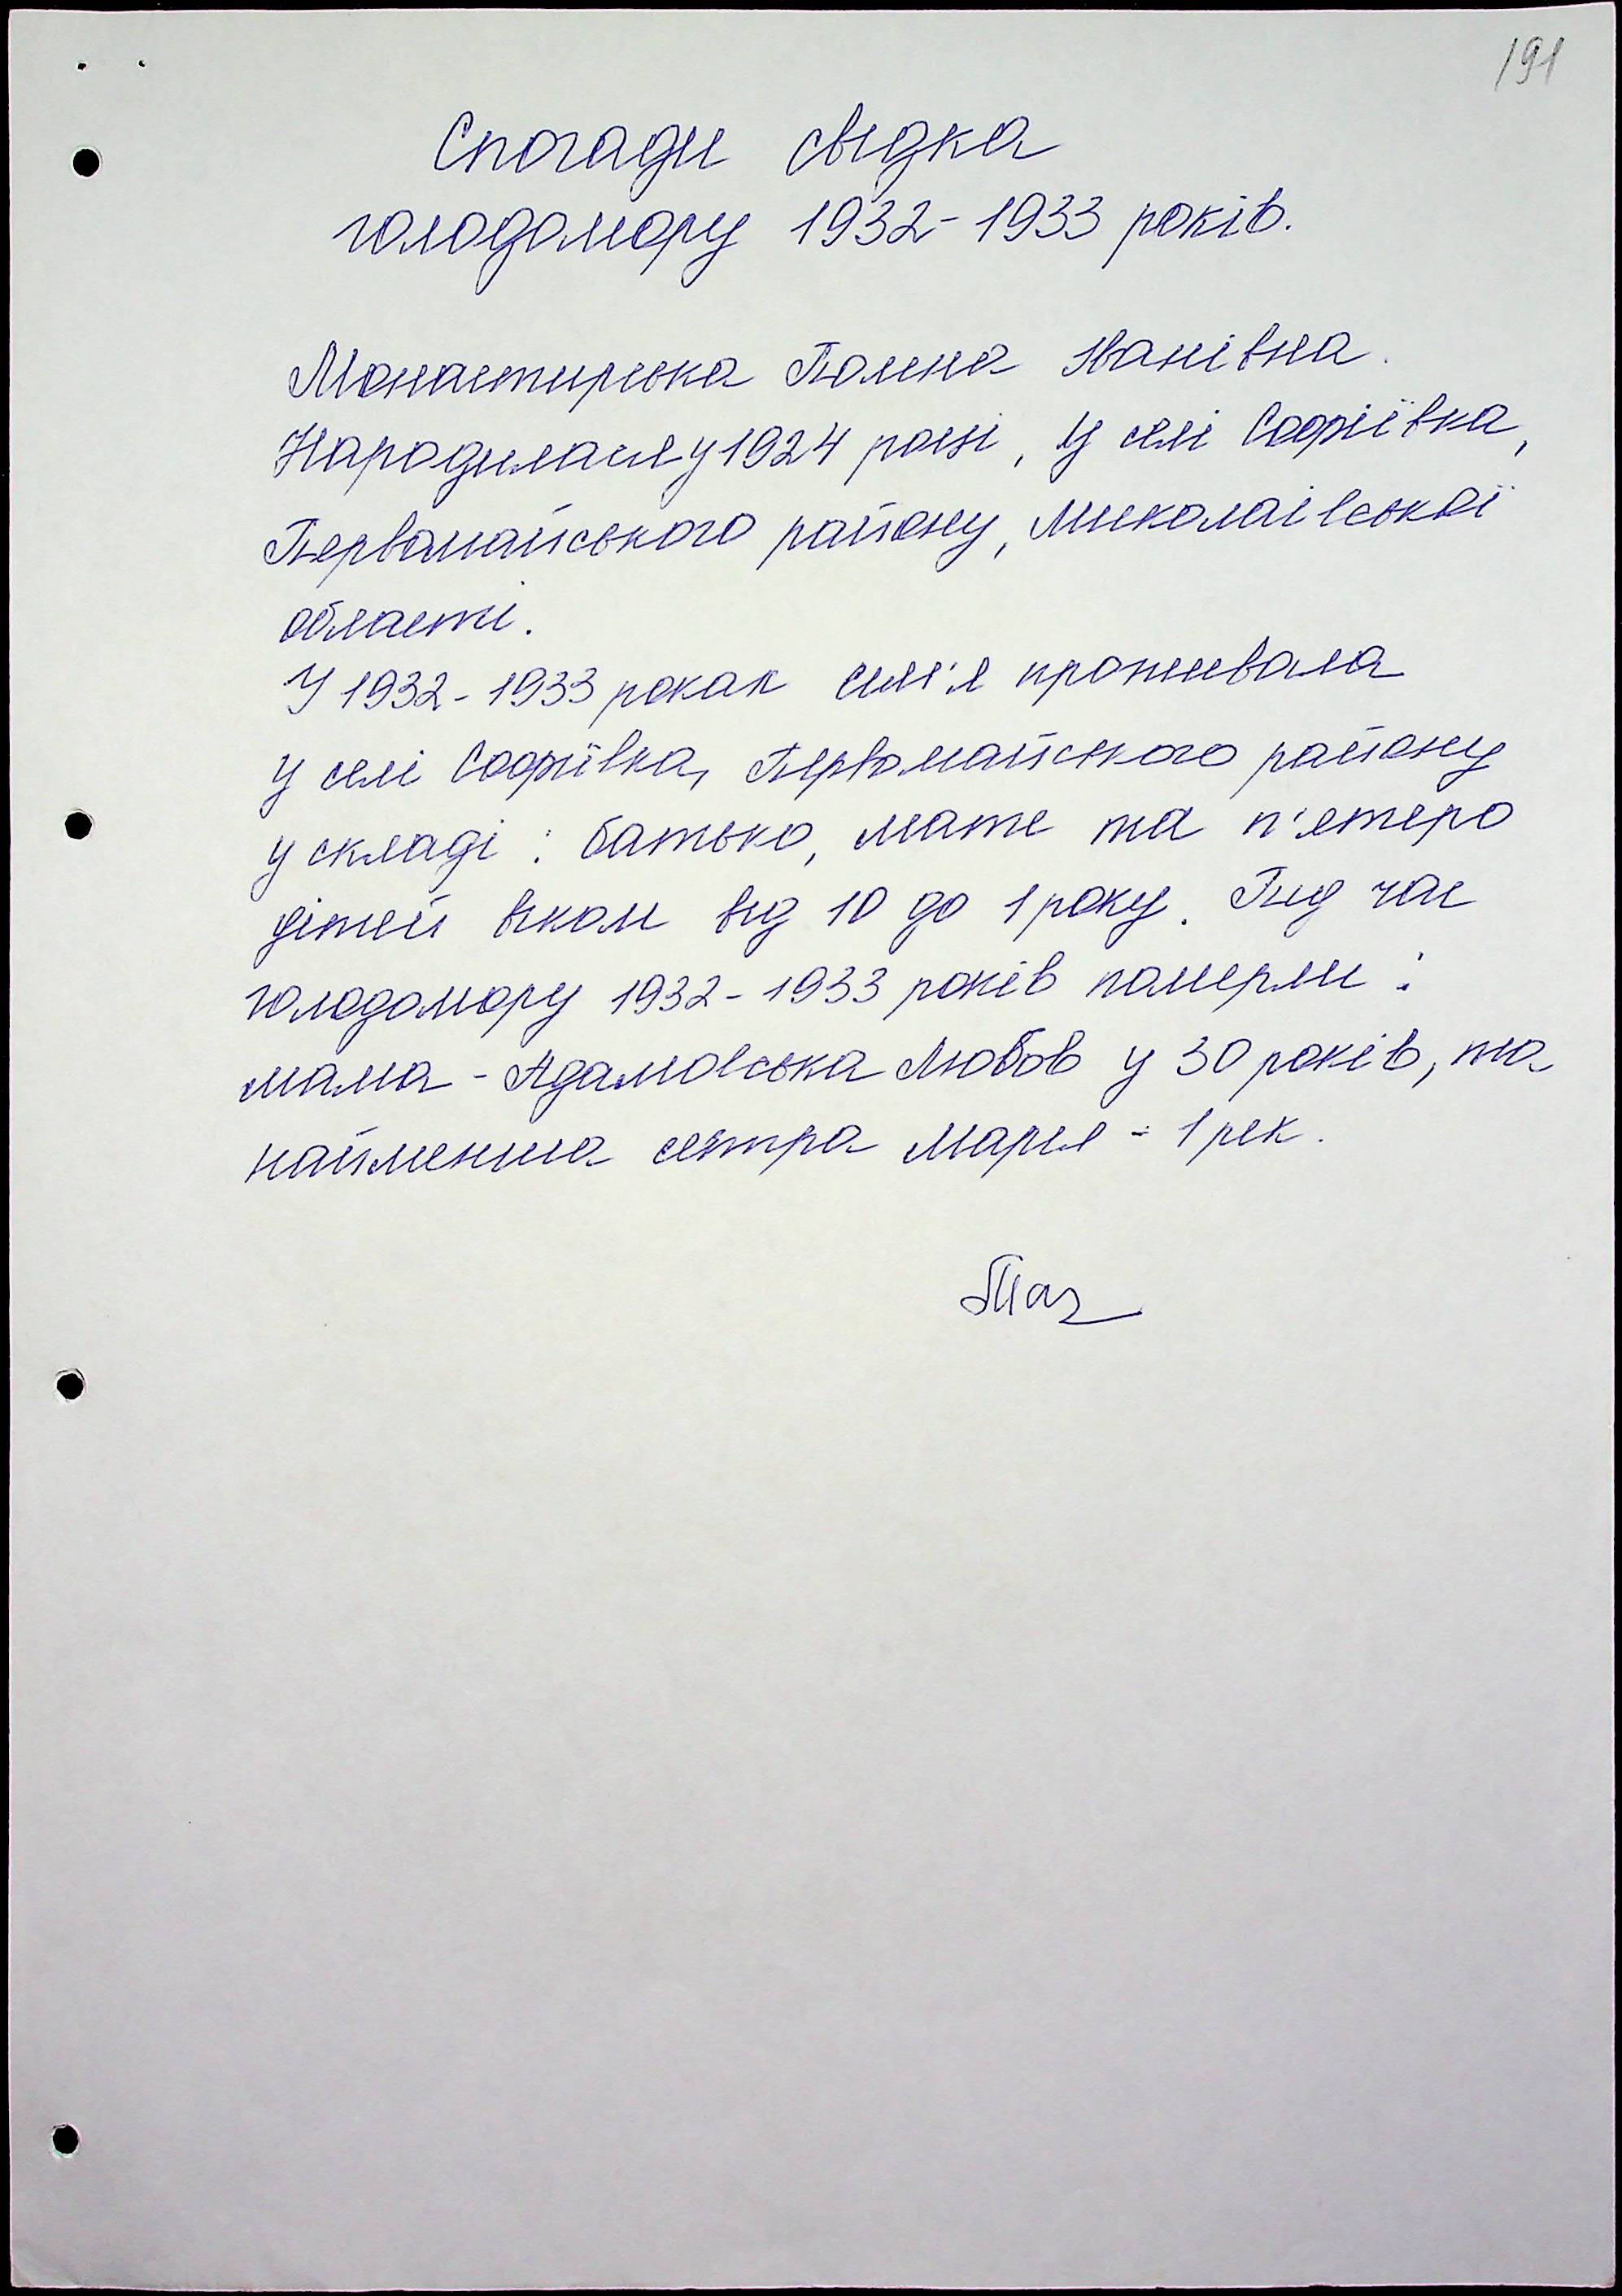 191
Спогади свідка
голодомору 1932-1933 років.
Монастирська Поліна Іванівна.
Народилася у 1924 році, у селі Софіївка,
Первомайського району, Миколаївської
області.
У 1932-1933 роках сім'я проживала
у селі Софіївка, Первомайського району
у складі: батько, мати та п'ятеро
дітей віком від 10 до 1 року. Під час
голодомору 1932-1933 років померли:
мама - Адамовська Любов у 30 років, та
найменша сестра Марія - 1 рік.